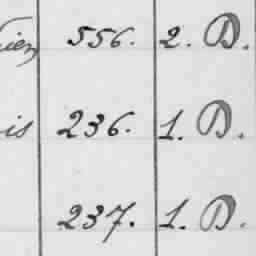 556. 2. D.
is 236. 1. D.
237. 1. D.